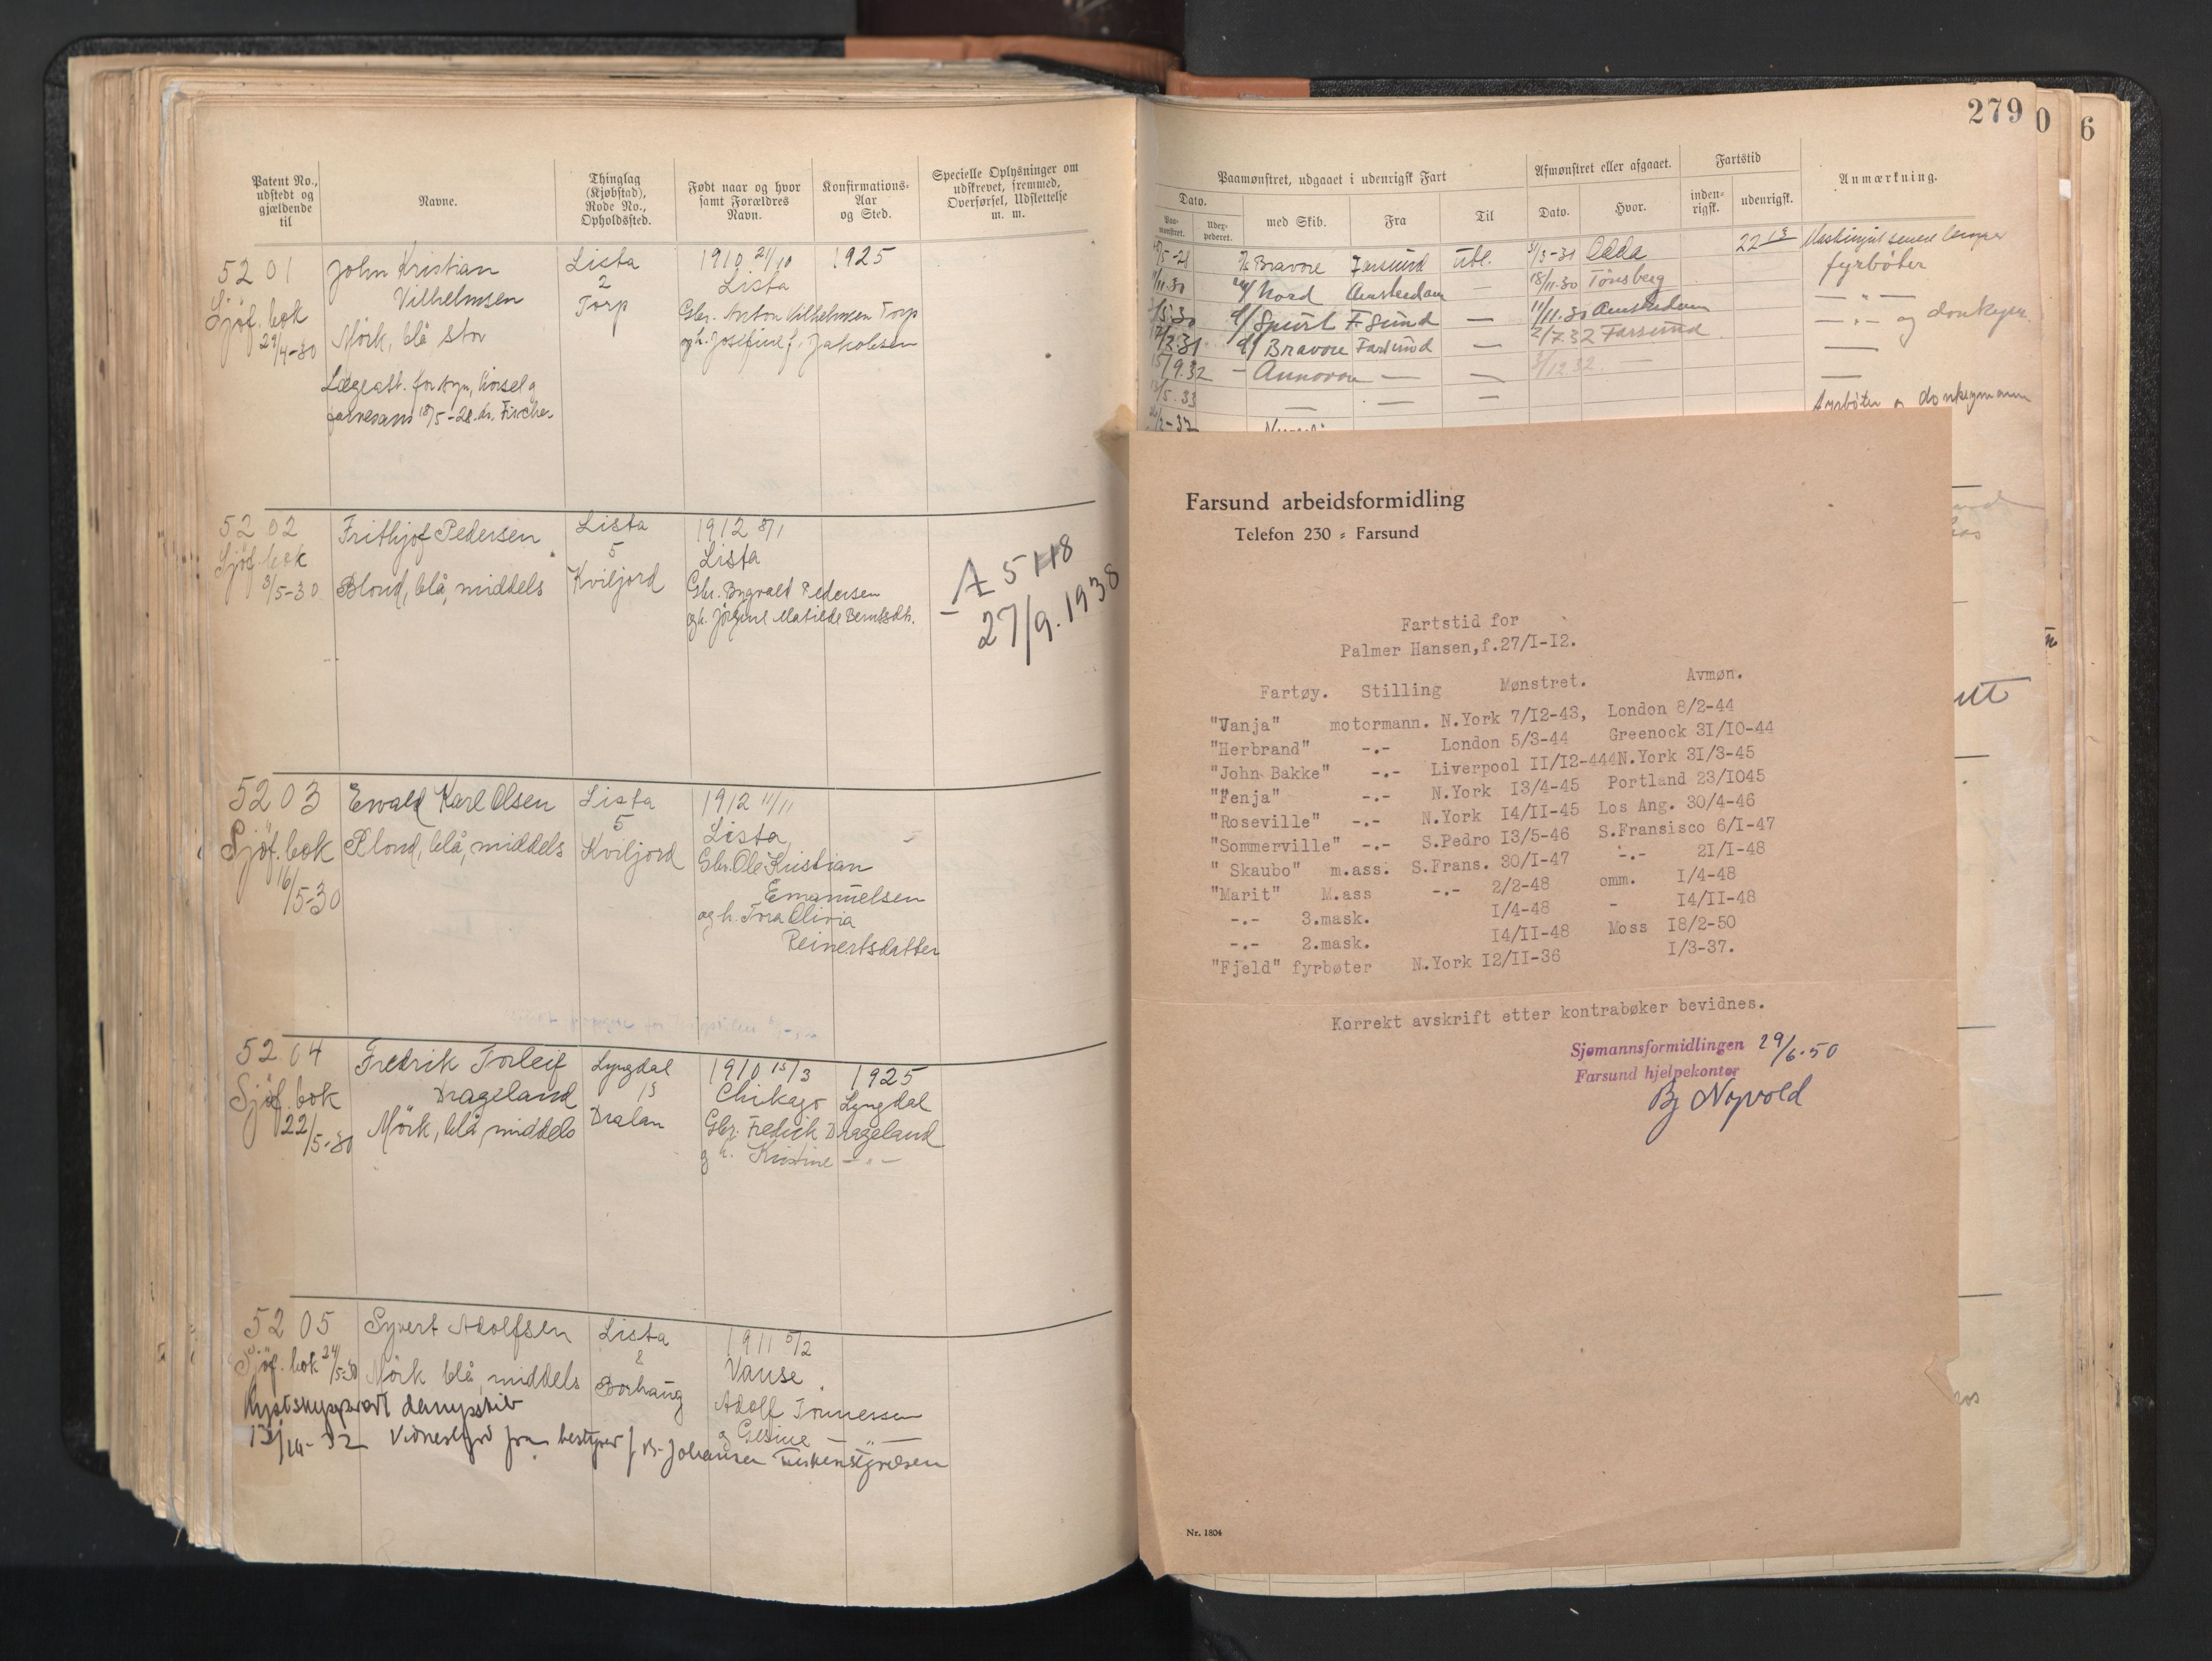 279
0
6
Patent No., udstedt og gjældende til
Navne.
Thinglag (Kjøbstad), Rode No., Opholdssted.
Født naar og hvor samt Forældres Navn.
Konfirmations-Aar og Sted.
Specielle Oplysninger om udskrevet, fremmed, Overførsel, Udslettelse m. m.
5201
Sjöf. bok
29/4-30
John Kristian
Vilhelmsen
Mörk, blå stor
Lægeatt. for syn, hörsel og
farvesans 18/5-28. dr. Fischer
Lista
2
Torp
1910 21/10
Lista
Gbr. Anton Vilhelmsen Torp
og h. Josefine f. Jakobsen
1925
5202
Sjöf. bok
3/5-30
Frithjof Pedersen
Blond, blå, middels
Lista
5
Kviljord
1912 8/1
Lista
Gbr. Bngvald Pedersen
og h. Jörgine Matilde Berntsdt.
A 5118
27/9.1938
5203
Sjöf. bok
16/5-30
Ewald Karl Olsen
Blond, blå, middels
Lista
5
Kviljord
1912 11/11
Lista
Gbr. Ole Kristian
Emanuelsen
og h. Tora Olivia
Reinertsdatter
5204
Sjöf. bok
22/5-30
Fredrik Torleif
Drageland
Mörk, blå, middels
Lyngdal
15
Dralan
1910 15/3
Chikago
Gbr. Fredrik Drageland
og h. Kristine -"-
1925
Lyngdal
5205
Sjöf. bok 24/5-30
Syvert Adolfsen
Mörk blå, middels
Lista
8
Borhaug
1911 5/2
Vanse
Adolf Tönnessen
og Gesine -"-
Kystskipperpr dampskib
Vidnesbyrd fra bestyrer
Johansen
Paamønstret, udgaaet i udenrigsk Fart
Afmønstret eller afgaaet.
Fartstid
Anmærkning.
Dato.
Paa-mønstret.
Udex-pederet.
med Skib.
Fra
Til
Dato.
Hvor.
inden-rigsk.
udenrigsk.
Bravore Farsund Utl. Odda
Nord Amsterdam — 18/11.30 Tönsberg
fyrbøter
Spurt F.sund — 11/11.30 Amsterdam
og donkeym.
Bravore Farsund — 2/7.32 Farsund
15/9.32 — Annovore — —
12/5.33 — — —
Fyrbøter og donkeymann
Farsund arbeidsformidling
Telefon 230 = Farsund
Fartstid for
Palmer Hansen,f.27/I-I2.
Fartøy. Stilling Mønstret. Avmøn.
"Vanja" motormann. N.York 7/I2-43, London 8/2-44
"Herbrand" -.- London 5/3-44 Greenock 3I/I0-44
"John Bakke" -.- Liverpool II/I2-444N.York 3I/3-45
"Fenja" -.- N.York I3/4-45 Portland 23/I045
"Roseville" -.- N.York I4/II-45 Los Ang. 30/4-46
"Sommerville" -.- S.Pedro I3/5-46 S.Fransisco 6/I-47
" Skaubo" m.ass. S.Frans. 30/I-47 -.- 2I/I-48
"Marit" M.ass -.- 2/2-48 omm. I/4-48
-.- 3.mask. I/4-48 - I4/II-48
-.- 2.mask. I4/II-48 Moss I8/2-50
"Fjeld" fyrbøter N.York I2/II-36 I/3-37.
Korrekt avskrift etter kontrabøker bevidnes.
Sjømannsformidlingen 29/6-50
Farsund hjelpekontor
Nr. 1804